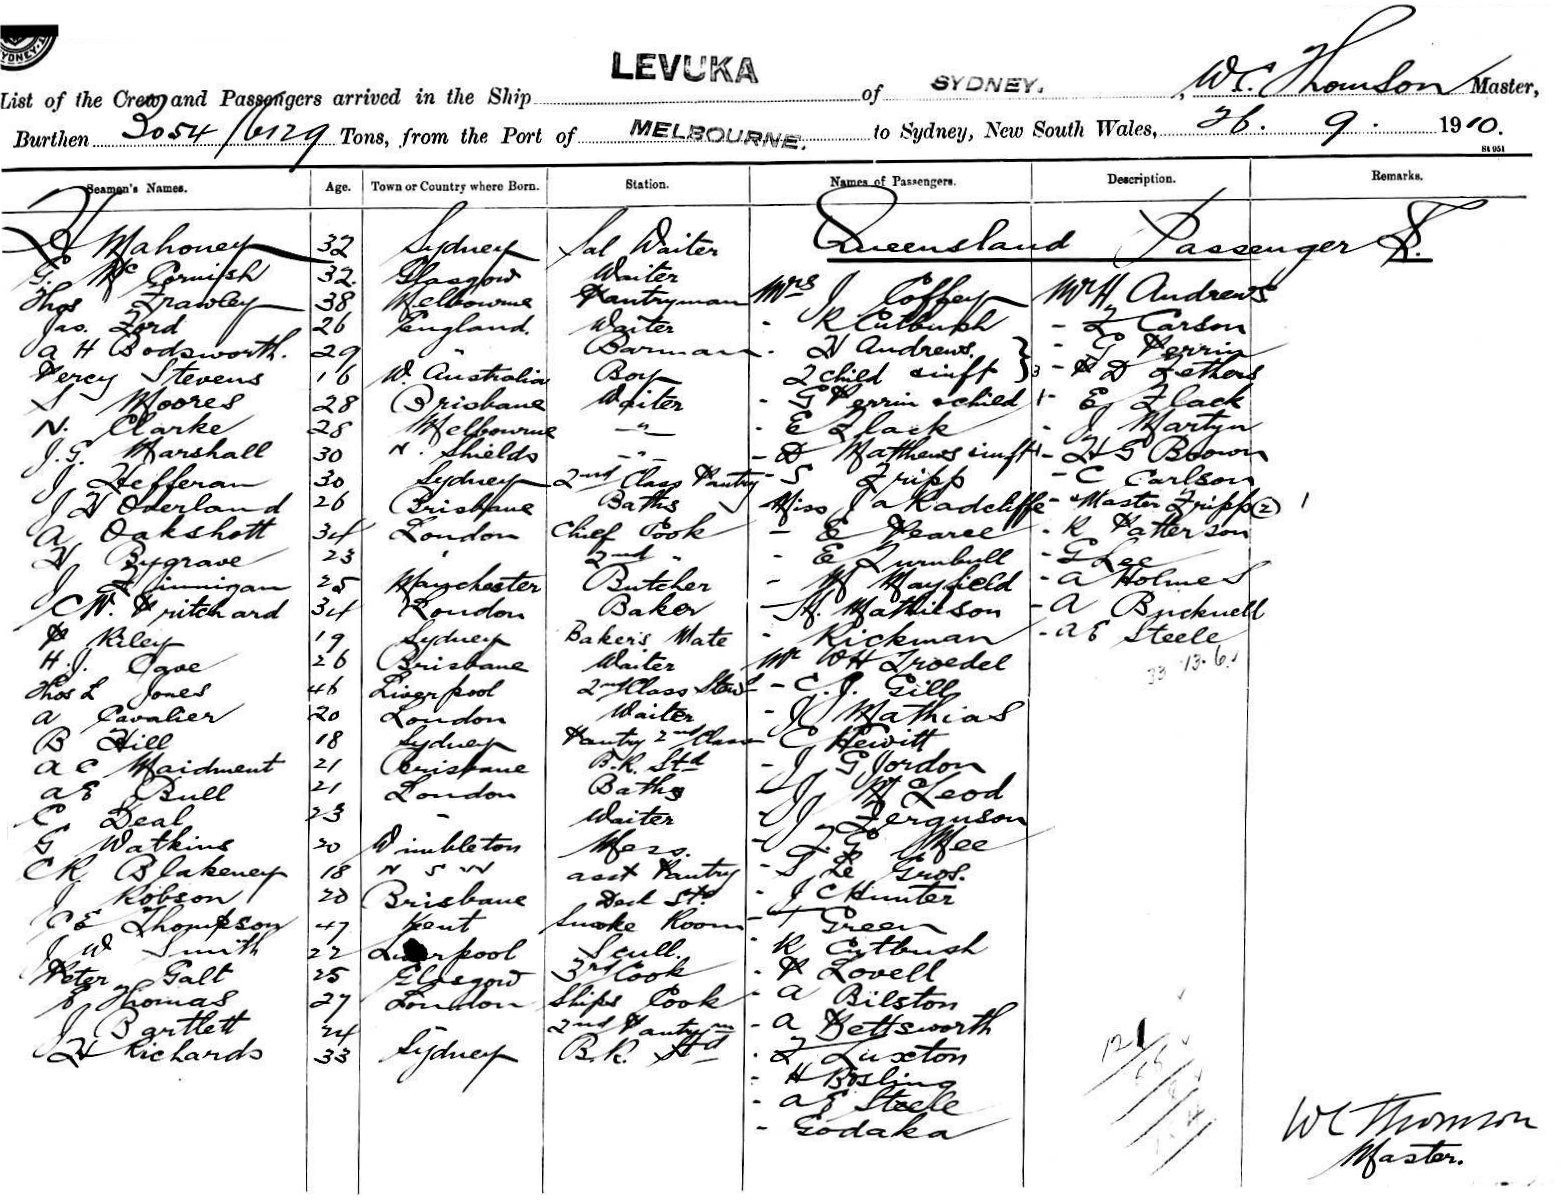 SYDNEY
LEVUKA
SYDNEY.
List of the Crew and Passengers arrived in the Ship LEVUKA of SYDNEY. , W. C. Thomson Master,
Burthen 3054/6129 Tons, from the Port of MELBOURNE. to Sydney, New South Wales, 26. 9. 1910.
St 951
Seamen's Names. Age. Town or Country where Born. Station. Names of Passengers. Description. Remarks.
Mahoney 32 Sydney Sal Waiter Queensland Passengers
G. McCornish 32. Glasgow Waiter
Thos Frawley 38 Melbourne Pantryman Mrs J Coffey Mr H Andrews
Jas. Ford 26 England. Waiter - R Cutbush - F Carson
A H Bodsworth. 29 " Barman - H Andrews. - G Perrin
Percy Stevens 16 W. Australia Boy 2 child & inft } 3 - P D Fethers
S Moores 28 Brisbane Waiter - G Perrin & child 1 - E Flack
N. Clarke 28 Melbourne -"- - E Flack - J Martyn
J. G. Marshall 30 N. Shields -"- - D Matthews & inft 1 - H G Brown
J Heffernan 30 Sydney 2nd Class Pantry - S Fripp - C Carlson
J H Overland 26 Brisbane Baths Miss J A Radcliffe - Master Fripp (2) 1
A Oakshott 34 London Chief Cook - E Pearce - R Patterson
H Bygrave 23 " 2nd " - E Turnbull - G Lee
J Finnigan 25 Manchester Butcher - M Mayfield - A Holmes
C W. Pritchard 34 London Baker - A. Mathieson - A Bucknell
P Riley 19 Sydney Baker's Mate - Rickman - A E Steele
H. J. Cave 26 Brisbane Waiter Mr W H Troedel 33 13. 6
Thos L Jones 46 Liverpool 2nd Class Stew - C. J. Gill
A Cavalier 20 London Waiter - J Mathias
B Hill 18 Sydney Pantry 2nd Class - C Hewitt
A C Maidment 21 Brisbane B.R. Std - J G Jordon
A E Bull 21 London Baths - J McLeod
C Deal 23 " Waiter - J Ferguson
G Watkins 20 Wimbleton Mess. - F G Mee
C R Blakeney 18 N S W asst Pantry - S Le Gros.
J Robson 20 Brisbane Deck St. - J C Hunter
C E Thompson 47 Kent Smoke Room - T Green
J W Smith 22 Liverpool Scull. - R Cutbush
Peter Galt 25 Glasgow 3rd Cook - P Lovell
E Thomas 27 London Ships Cook - A Bilston
J Bartlett 24 " 2nd Pantrym - A Bettsworth
H Richards 33 Sydney B.R. Std - F Luxton
- H Bosling
- A E Steele
- Godaka
121
W C Thomson
Master.